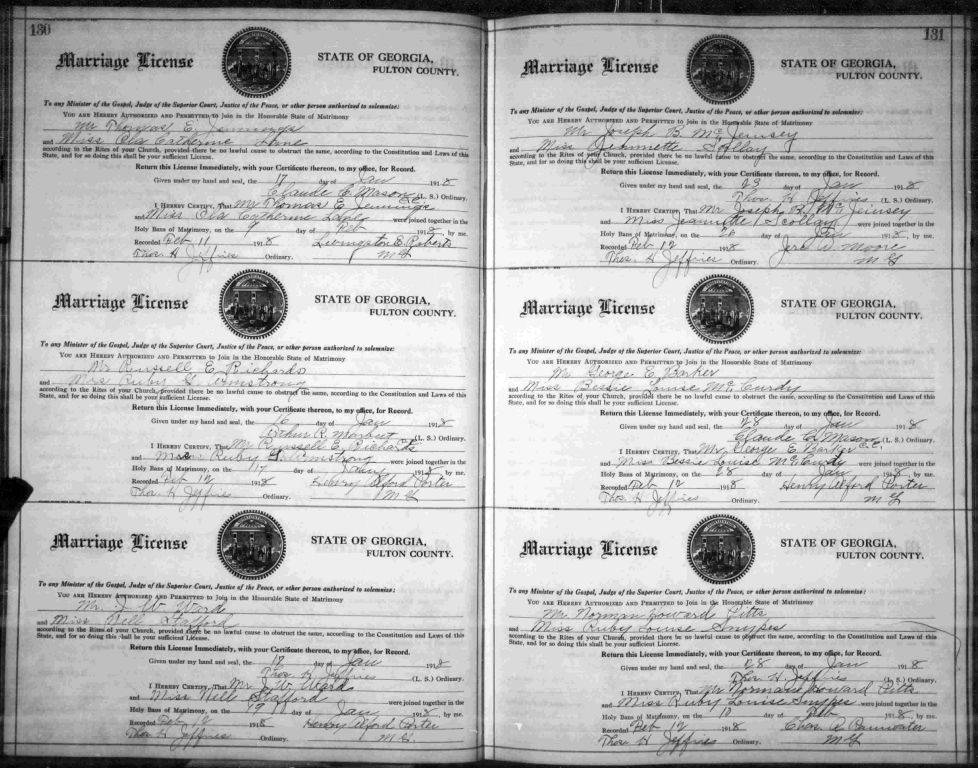 130
Marriage License
STATE OF GEORGIA,
FULTON COUNTY.
To any Minister of the Gospel, Judge of the Superior Court, Justice of the Peace, or other person authorized to solemnize:
YOU ARE HEREBY AUTHORIZED AND PERMITTED to Join in the Honorable State of Matrimony
Mr Thomas E. Jennings
and Miss Ola Catherine Lane
according to the Rites of your Church, provided there be no lawful cause to obstruct the same, according to the Constitution and Laws of this
State, and for so doing this shall be your sufficient License.
Return this License Immediately, with your Certificate thereon, to my office, for Record.
Given under my hand and seal, the 17 day of Jan 1918
Claude C. Mason C.C. (L. S.) Ordinary.
I HEREBY CERTIFY, That Mr Thomas E Jennings
and Miss Ola Catherine Lane were joined together in the
Holy Bans of Matrimony, on the 9 day of Feb 1918, by me.
Recorded Feb 11 1918 Livingston E. Roberts
Thos. H Jeffries Ordinary. M G
Marriage License
STATE OF GEORGIA,
FULTON COUNTY.
To any Minister of the Gospel, Judge of the Superior Court, Justice of the Peace, or other person authorized to solemnize:
YOU ARE HEREBY AUTHORIZED AND PERMITTED to Join in the Honorable State of Matrimony
Mr Russell E Richards
and Miss Ruby G. Armstrong
according to the Rites of your Church, provided there be no lawful cause to obstruct the same, according to the Constitution and Laws of this
State, and for so doing this shall be your sufficient License.
Return this License Immediately, with your Certificate thereon, to my office, for Record.
Given under my hand and seal, the 16 day of Jan 1918
Arthur R. Marbut C.C. (L. S.) Ordinary
I HEREBY CERTIFY, That Mr Russell E. Richards
and Miss Ruby G. Armstrong were joined together in the
Holy Bans of Matrimony, on the 17 day of Jany 1918, by me.
Recorded Feb 12 1918 Henry Alford Porter
Thos. H Jeffries Ordinary. M G
Marriage License
STATE OF GEORGIA,
FULTON COUNTY.
To any Minister of the Gospel, Judge of the Superior Court, Justice of the Peace, or other person authorized to solemnize:
YOU ARE HEREBY AUTHORIZED AND PERMITTED to Join in the Honorable State of Matrimony
Mr. J W Ward
and Miss Nell Stafford
according to the Rites of your Church, provided there be no lawful cause to obstruct the same, according to the Constitution and Laws of this
State, and for so doing this shall be your sufficient License.
Return this License Immediately, with your Certificate thereon, to my office, for Record.
Given under my hand and seal, the 18 day of Jan 1918
Thos H Jeffries (L. S.) Ordinary.
I HEREBY CERTIFY, That Mr J W Ward
and Miss Nell Stafford were joined together in the
Holy Bans of Matrimony, on the 19 day of Jan 1918, by me.
Recorded Feb 12 1918 Henry Alford Porter
Thos H Jeffries Ordinary. M.G.
131
Marriage License
STATE OF GEORGIA,
FULTON COUNTY.
To any Minister of the Gospel, Judge of the Superior Court, Justice of the Peace, or other person authorized to solemnize:
YOU ARE HEREBY AUTHORIZED AND PERMITTED to Join in the Honorable State of Matrimony
Mr Joseph B. McJeinsey
and Miss Jeannette Scollay
according to the Rites of your Church, provided there be no lawful cause to obstruct the same, according to the Constitution and Laws of this
State, and for so doing this shall be your sufficient License.
Return this License Immediately, with your Certificate thereon, to my office, for Record.
Given under my hand and seal, the 23 day of Jan 1918
Thos. H Jeffries (L. S.) Ordinary.
I HEREBY CERTIFY, That Mr. Joseph B. McJeinsey
and Miss Jeannette Scollay were joined together in the
Holy Bans of Matrimony, on the 26 day of Jan 1918, by me.
Recorded Feb 12 1918 Jere A. Moore
Thos. H Jeffries Ordinary. M G
Marriage License
STATE OF GEORGIA,
FULTON COUNTY.
To any Minister of the Gospel, Judge of the Superior Court, Justice of the Peace, or other person authorized to solemnize:
YOU ARE HEREBY AUTHORIZED AND PERMITTED to Join in the Honorable State of Matrimony
Mr George E. Barker
and Miss Bessie Louise McCurdy
according to the Rites of your Church, provided there be no lawful cause to obstruct the same, according to the Constitution and Laws of this
State, and for so doing this shall be your sufficient License.
Return this License Immediately, with your Certificate thereon, to my office, for Record.
Given under my hand and seal, the 28 day of Jan 1918
Claude C. Mason C.C. (L. S.) Ordinary.
I HEREBY CERTIFY, That Mr. George E Barker
and Miss Bessie Louise McCurdy were joined together in the
Holy Bans of Matrimony, on the 28 day of Jan 1918, by me.
Recorded Feb 12 1918 Henry Alford Porter
Thos. H Jeffries Ordinary. M G
Marriage License
STATE OF GEORGIA,
FULTON COUNTY.
To any Minister of the Gospel, Judge of the Superior Court, Justice of the Peace, or other person authorized to solemnize:
YOU ARE HEREBY AUTHORIZED AND PERMITTED to Join in the Honorable State of Matrimony
Mr Norman Howard Pitts
and Miss Ruby Louise Smypes
according to the Rites of your Church, provided there be no lawful cause to obstruct the same, according to the Constitution and Laws of this
State, and for so doing this shall be your sufficient License.
Return this License Immediately, with your Certificate thereon, to my office, for Record.
Given under my hand and seal, the 28 day of Jan 1918
Thos. H Jeffries (L. S.) Ordinary.
I HEREBY CERTIFY, That Mr Norman Howard Pitts
and Miss Ruby Louise Smypes were joined together in the
Holy Bans of Matrimony, on the 10 day of Feb 1918, by me.
Recorded Feb 12 1918 Chas. A
Thos. H Jeffries Ordinary. M G